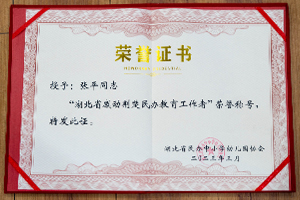 荣誉证书
授予：张平同志
“湖北省感动荆楚民办教育工作者”荣誉称号，
特发此证。
湖北省民办中小学幼儿园协会
二〇二三年三月